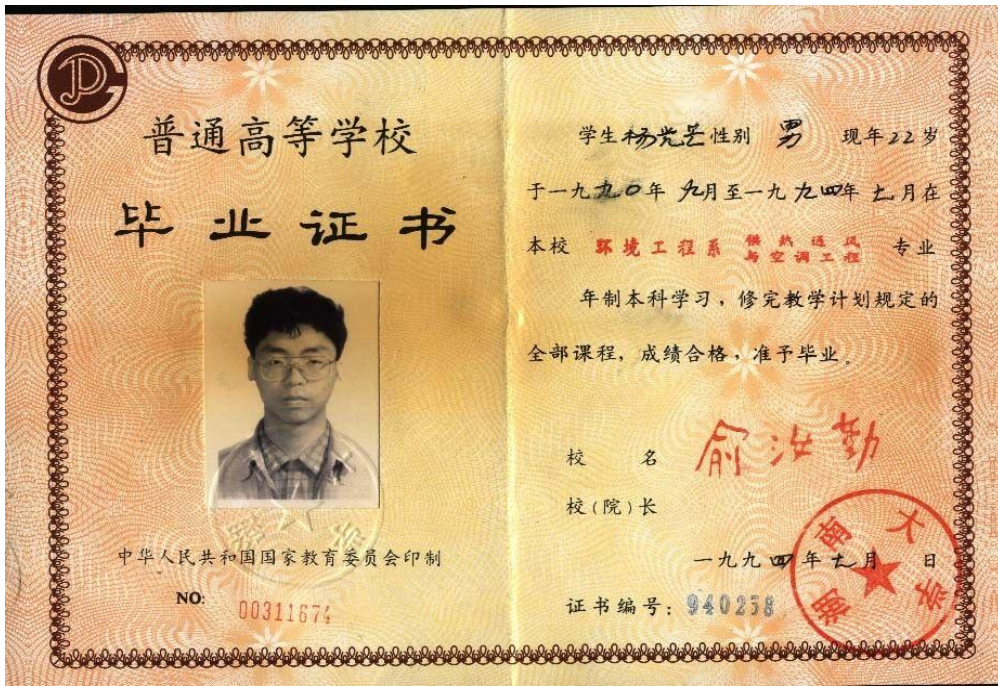 普通高等学校
毕业证书
中华人民共和国国家教育委员会印制
NO: 00311674
学生 杨光芒 性别 男 现年22岁
于一九九〇年 九月至一九九四年七月在
本校 环境工程系 供热通风与空调工程 专业
年制本科学习，修完教学计划规定的
全部课程，成绩合格，准予毕业。
校 名 俞汝勤
校(院)长
湖南大学
一九九四年七月 日
证书编号: 940258